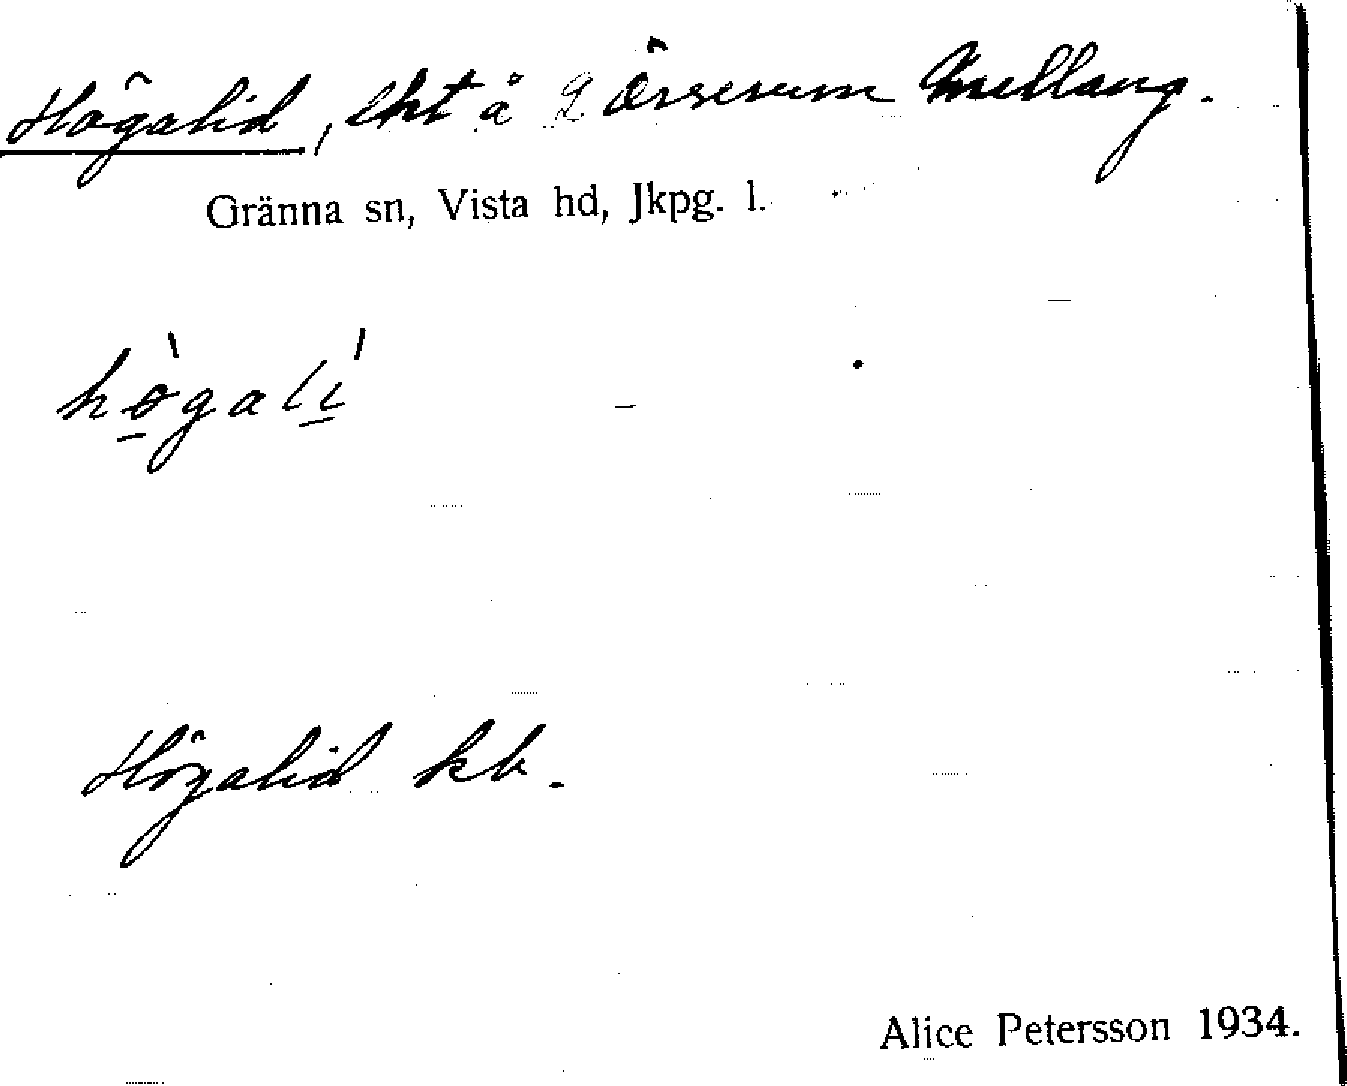 Högalid, lht å Örserum Mellang.
Gränna sn, Vista hd, Jkpg. l.
hògalí
Högalid kb.
Alice Petersson 1934.